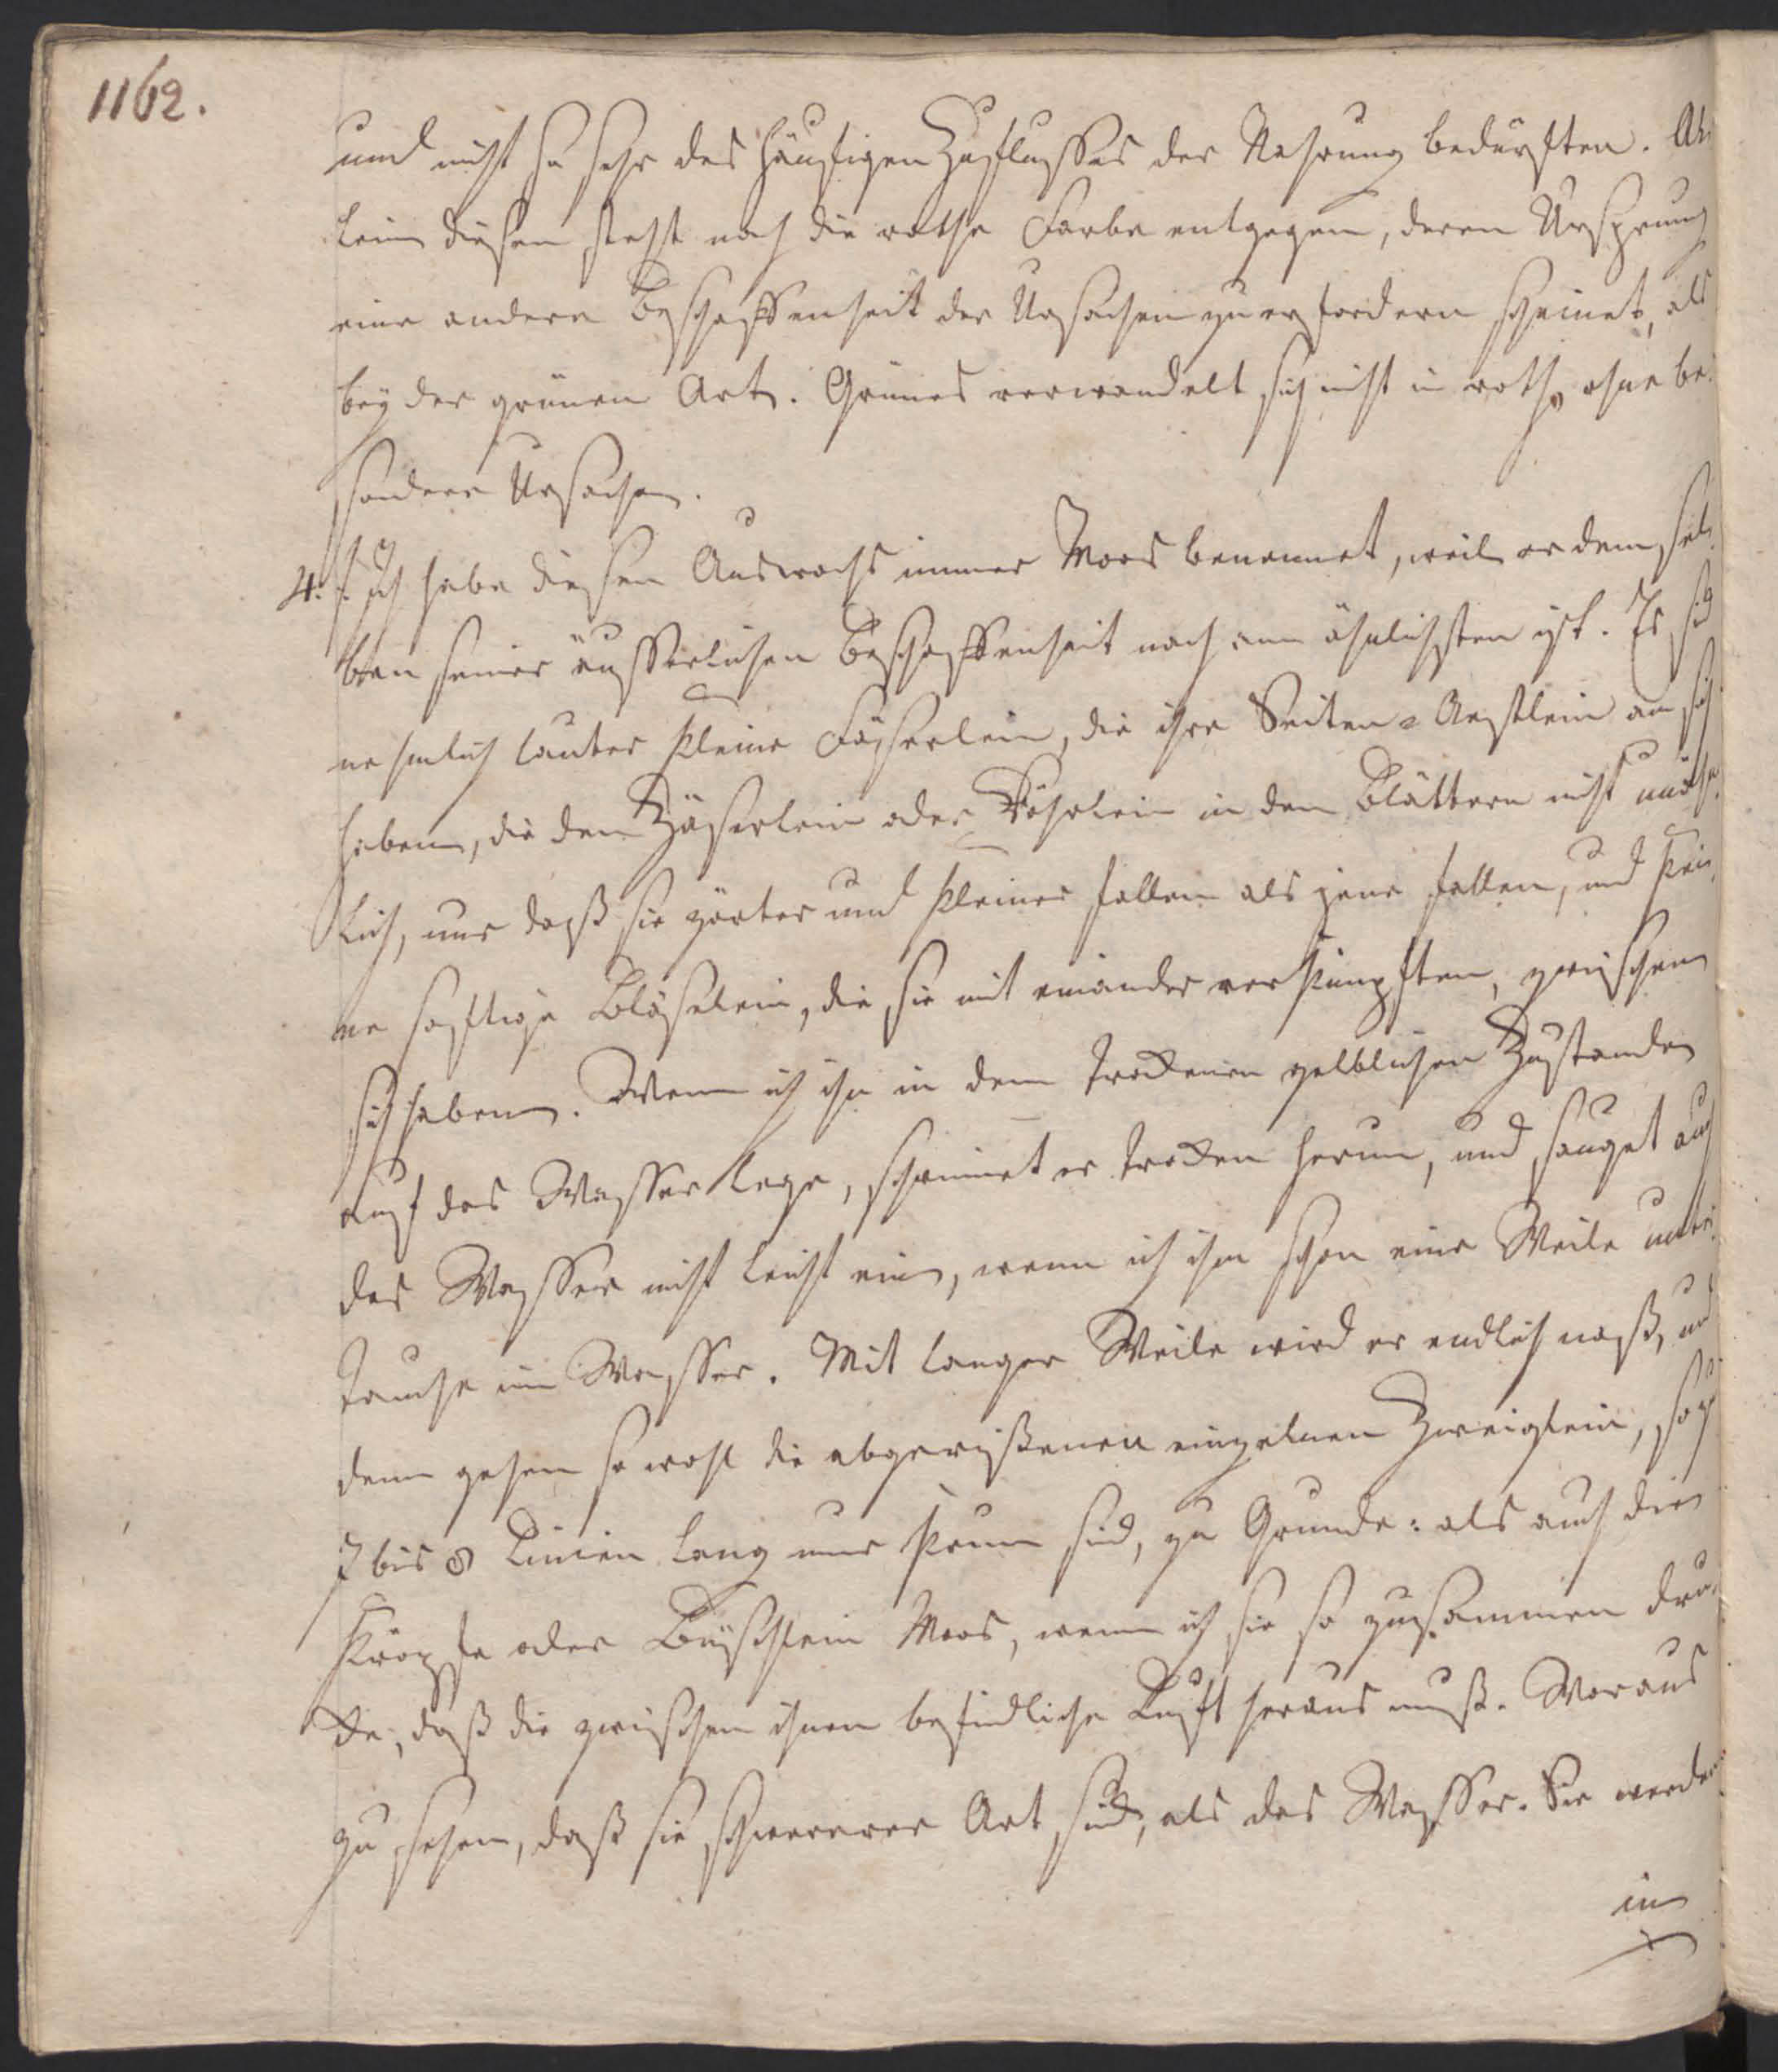 1162.
und nicht so sehr des häufigen Zuflusses der Nahrung bedürften. Al-
lein diesem steht noch die rothe Farbe entgegen, deren Ursprung
eine andere Beschaffenheit der Ursachen zu erfordern scheinet, als
bey der grünen Art. Grünes verwandelt sich nicht in roth, ohne be-
sondere Ursachen.
4. Ich habe diesen Auswachs immer Moos benennet, weil er demsel-
ben seiner äusserlichen Beschaffenheit nach am ähnlichsten ist. Es sind
nehmlich lauter kleine Fäserlein, die ihre Seiten-Aestlein an sich
haben, die den Zäserlein oder Röhrlein in den Blättern nicht unähn-
lich, nur daß sie zärter und kleiner fallen als jene fallen, und kei-
ne saftige Bläselein, die sie mit einander verknüpften, zwischen
sich haben. Wenn ich ihn in dem trockenen gelblichen Zustande
auf das Wasser lege, schwimmet er trocken herum, und sauget auch
das Wasser nicht leicht ein, wenn ich ihn schon eine Weile unter-
tauche im Wasser. Mit langer Weile wird er endlich naß, und
denn gehen so wohl die abgerißenen einzelnen Zweiglein,
7 bis 8 Linien lang nur kaum sind, zu Grunde: als auch die
Kröpfe oder Büschlein Moos, wenn ich sie so zusammen dru-
cke, daß die zwischen ihnen befindliche Luft heraus muß. Woraus
zu sehen, daß sie schwererer Art sind, als das Wasser. Sie werden
im